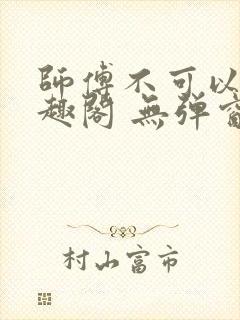 師傅不可以
趣閣 無彈窗
村山富市